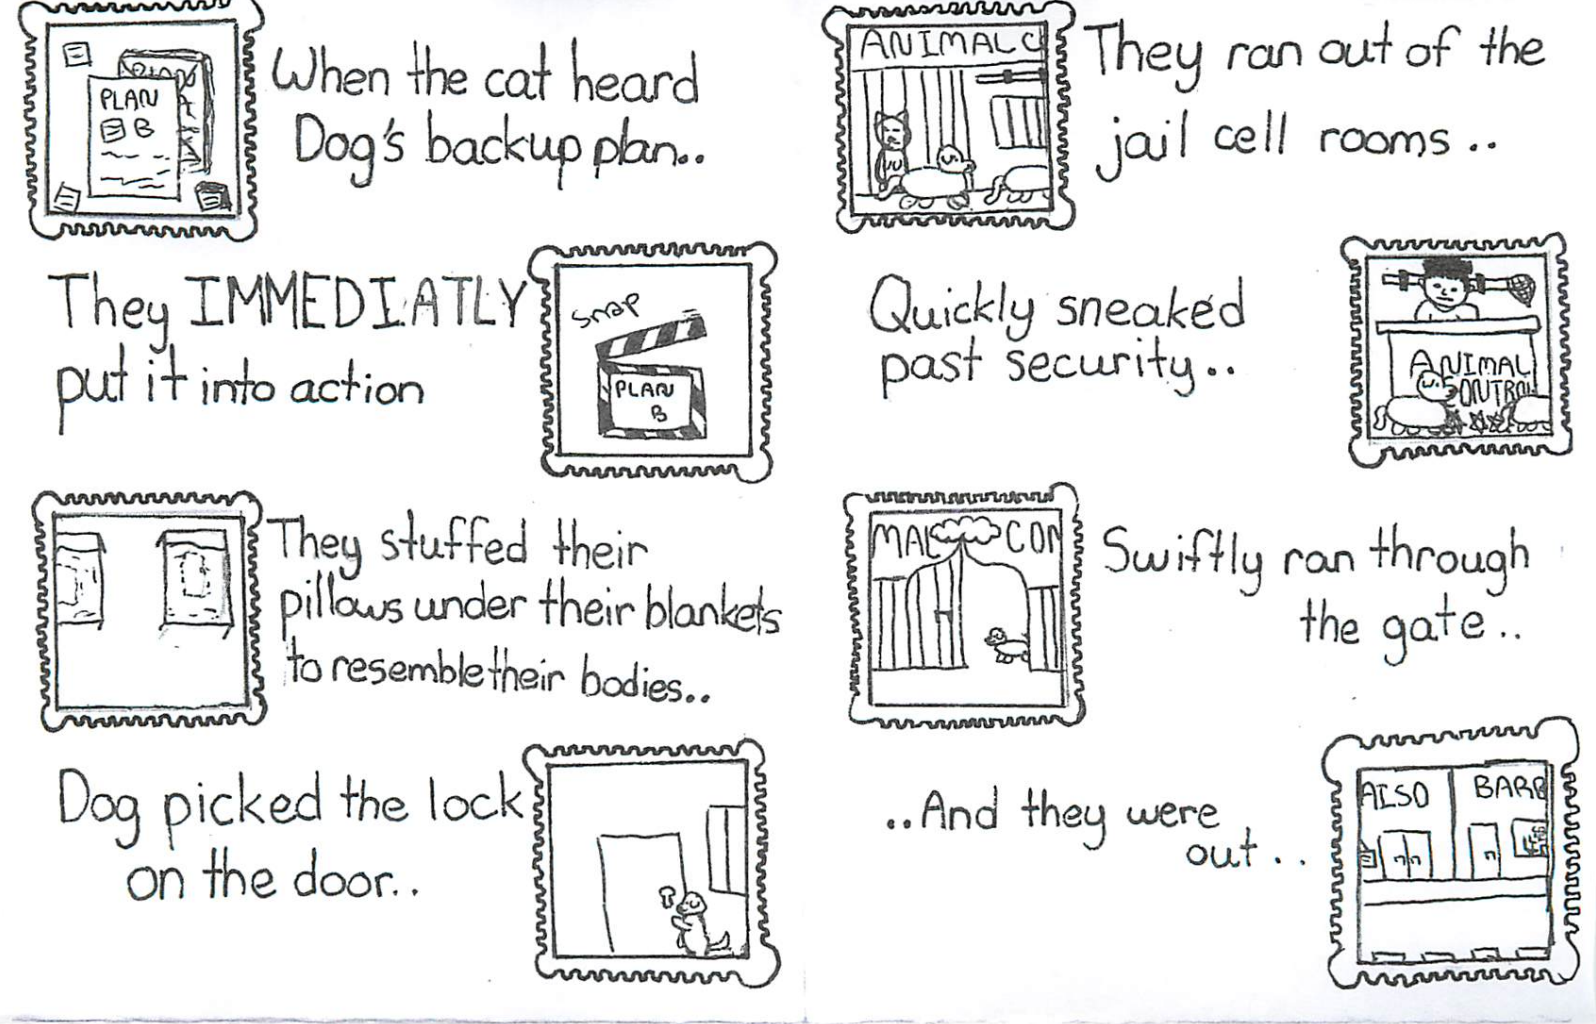 PLAN
PLAN
B
When the cat heard
Dog's backup plan..
They IMMEDIATLY
put it into action
SNAP
PLAN
B
They stuffed their
pillows under their blankets
to resemble their bodies..
Dog picked the lock
on the door..
ANIMAL C
They ran out of the
jail cell rooms..
Quickly sneaked
past security..
ANIMAL
CONTROL
MAL CON
Swiftly ran through
the gate..
..And they were
out..
AISO
BARB